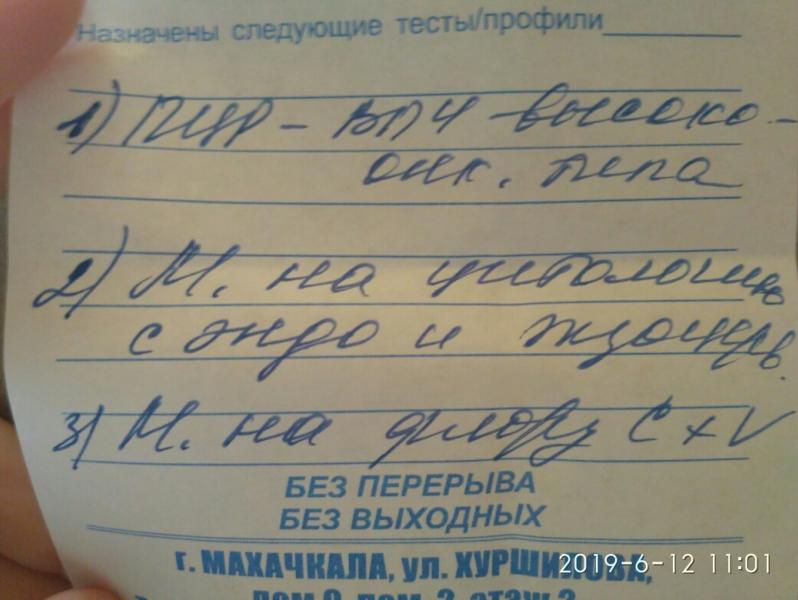 Назначены следующие тесты/профили
1) ПЦР - ВПЧ высоко-
онк. типа
2) М. на цитологию
с эндо и экзоцерв.
3) М. на флору C + V
БЕЗ ПЕРЕРЫВА
БЕЗ ВЫХОДНЫХ
г. МАХАЧКАЛА, ул. ХУРШИЛОВА,
2019-6-12 11:01